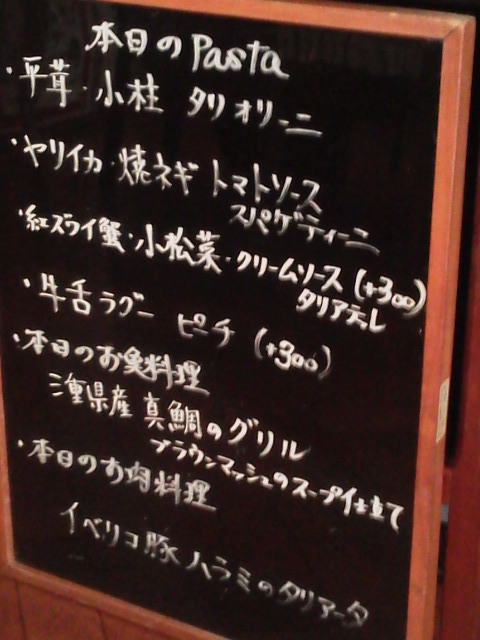 本日のPasta
・平茸・小柱 タリオリーニ
・ヤリイカ・焼ネギ トマトソース
スパゲティーニ
・紅ズワイ蟹・小松菜・クリームソース (+300)
タリアテレ
・牛舌ラグー ピーチ (+300)
・本日のお魚料理
三重県産 真鯛のグリル
ブラウンマッシュのスープ仕立て
・本日のお肉料理
イベリコ豚 ハラミのタリアータ